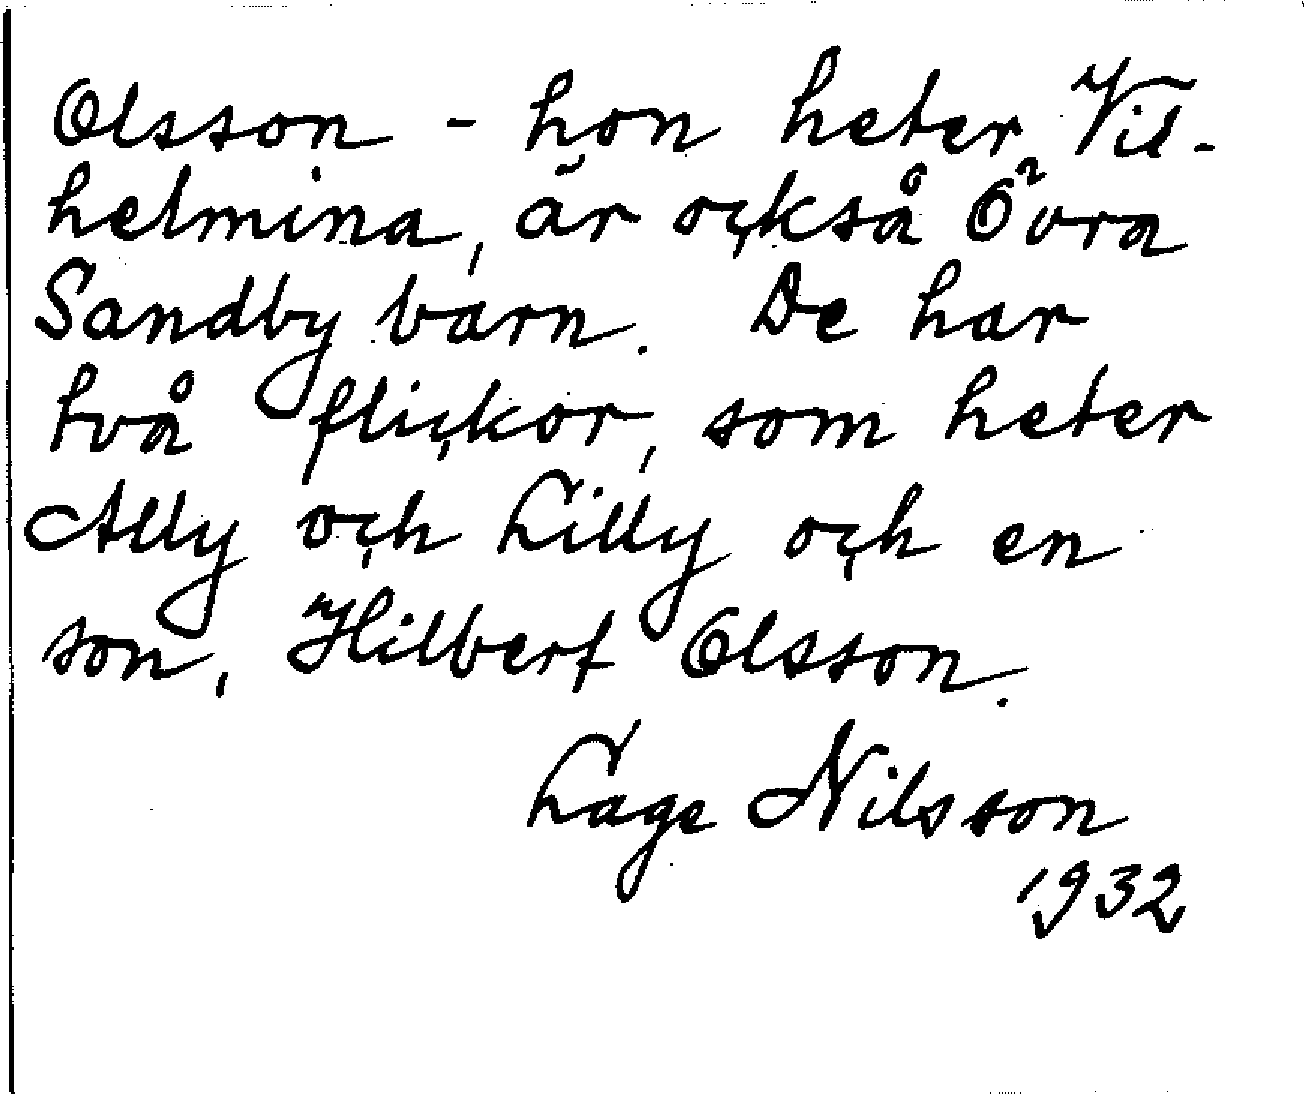 Olsson - hon heter Vil-
helmina, är också Övra
Sandby barn. De har
två flickor, som heter
Ally och Lilly och en
son, Hilbert Olsson.
Lage Nilsson
1932